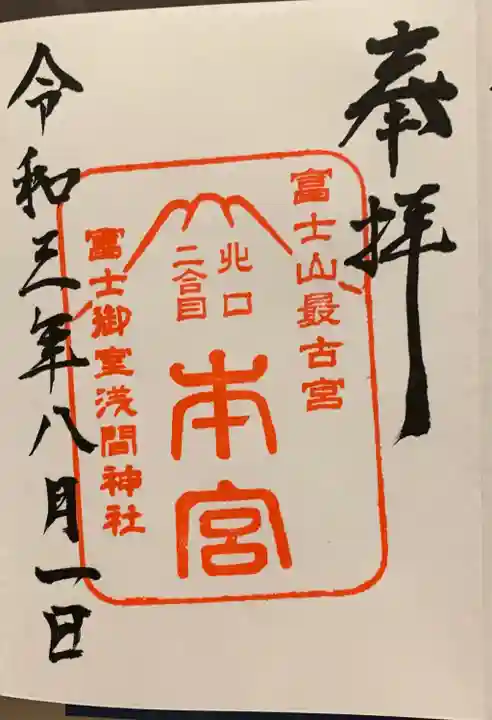 奉拝
富士山最古宮
北口
二合目
本宮
富士御室浅間神社
令和三年八月一日